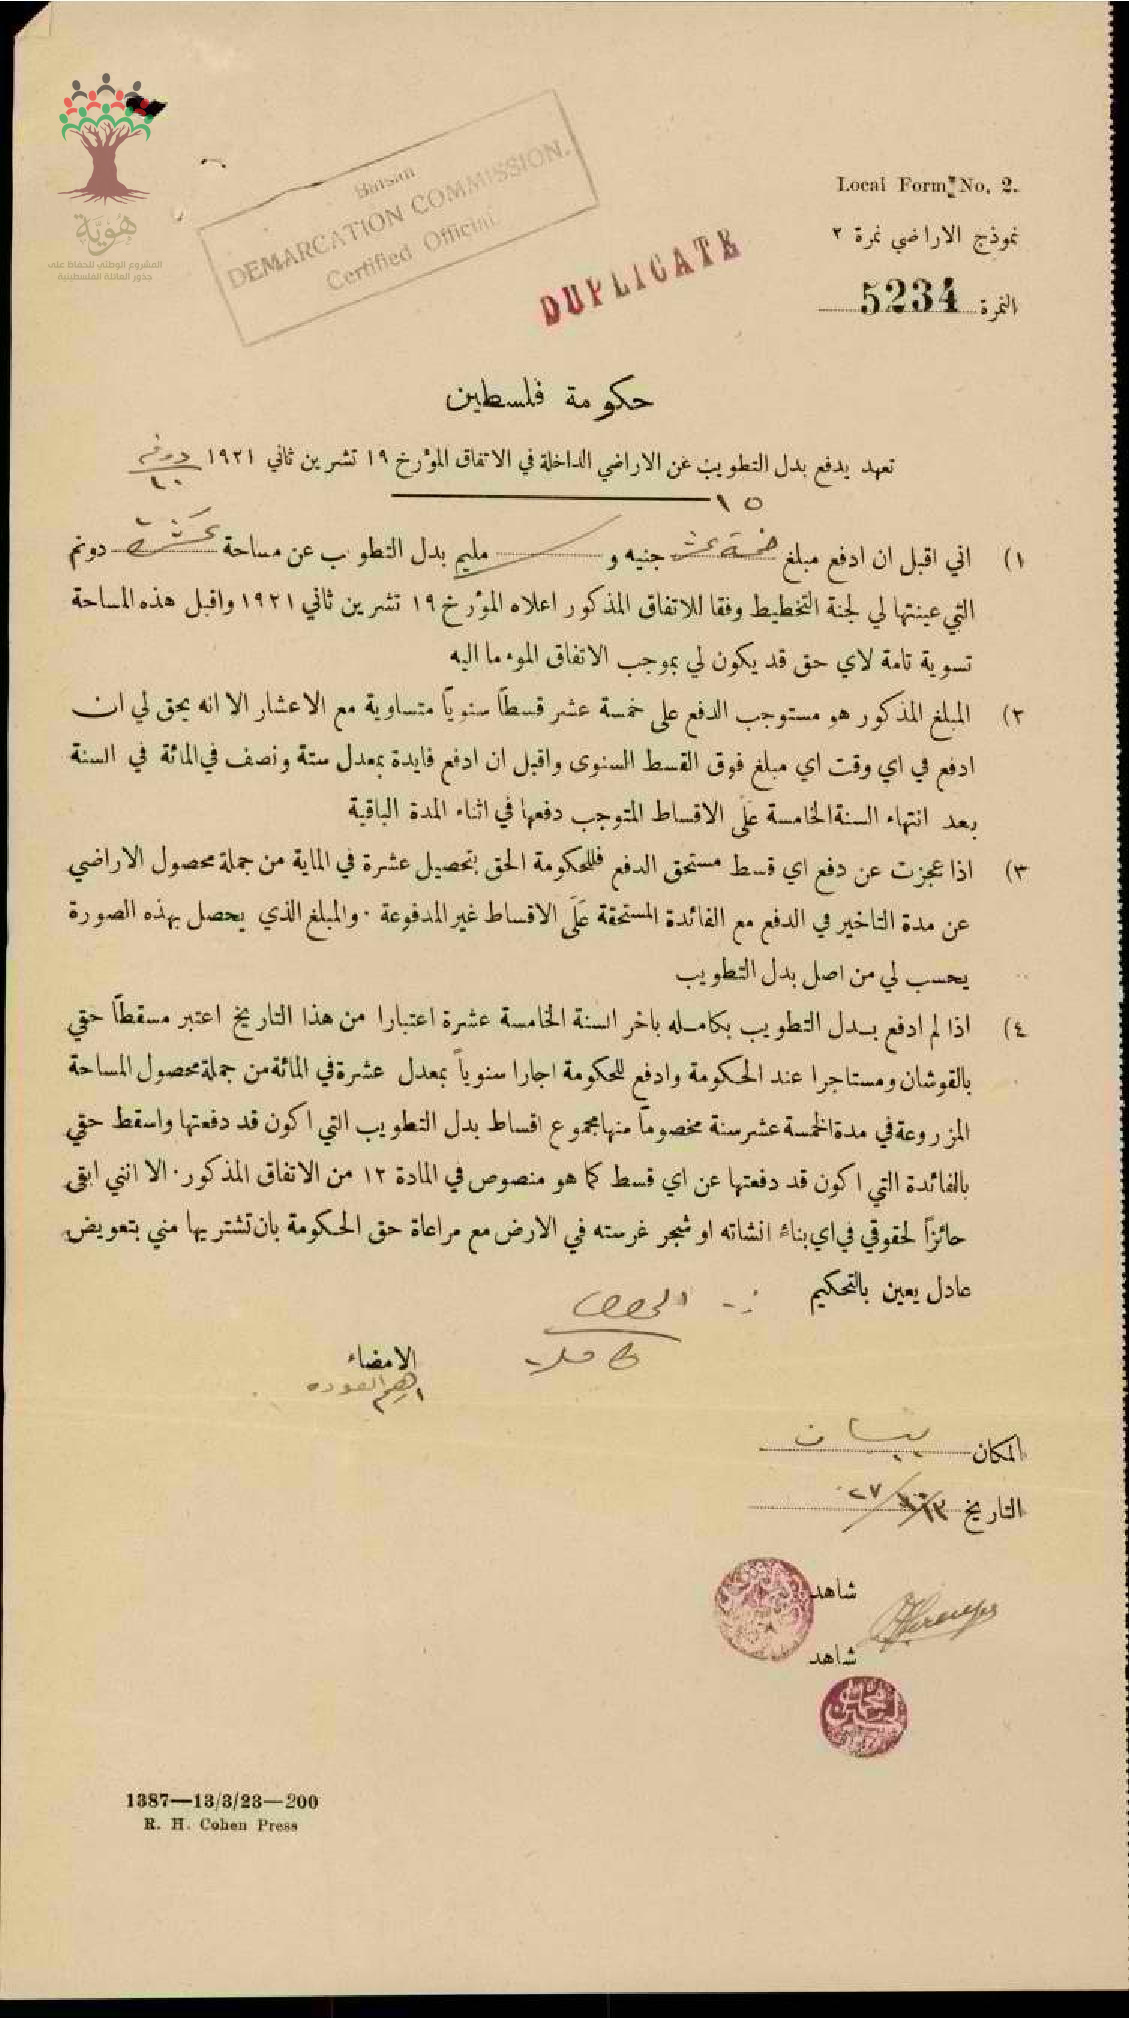 هُوِيَّة
المشروع الوطني للحفاظ على
جذور العائلة الفلسطينية
Baisan
DEMARCATION COMMISSION.
Certified Official.
DUPLICATE
Local Form No. 2.
نموذج الاراضي نمرة ٢
النمرة 5234
حكومة فلسطين
تعهد بدفع بدل التطويب عن الاراضي الداخلة في الاتفاق المؤرخ ١٩ تشرين ثاني ١٩٢١ دونم
١٠
١٥
١) اني اقبل ان ادفع مبلغ خمسة عشر جنيه و مليم بدل التطويب عن مساحة عشرة دونم
التي عينتها لي لجنة التخطيط وفقا للاتفاق المذكور اعلاه المؤرخ ١٩ تشرين ثاني ١٩٢١ واقبل هذه المساحة
تسوية تامة لاي حق قد يكون لي بموجب الاتفاق الموء ما اليه
٢) المبلغ المذكور هو مستوجب الدفع على خمسة عشر قسطاً سنوياً متساوية مع الاعشار الا انه يحق لي ان
ادفع في اي وقت اي مبلغ فوق القسط السنوى واقبل ان ادفع فايدة بمعدل ستة ونصف في المائة في السنة
بعد انتهاء السنة الخامسة عَلَى الاقساط المتوجب دفعها في اثناء المدة الباقية
٣) اذا عجزت عن دفع اي قسط مستحق الدفع فللحكومة الحق بتحصيل عشرة في الماية من جملة محصول الاراضي
عن مدة التاخير في الدفع مع الفائدة المستحقة عَلَى الاقساط غير المدفوعة · والمبلغ الذي يحصل بهذه الصورة
يحسب لي من اصل بدل التطويب
٤) اذا لم ادفع بدل التطويب بكامله باخر السنة الخامسة عشرة اعتبارا من هذا التاريخ اعتبر مسقطاً حقي
بالقوشان ومستاجرا عند الحكومة وادفع للحكومة اجارا سنوياً بمعدل عشرة في المائة من جملة محصول المساحة
المزروعة في مدة الخمسة عشر سنة مخصوماً منها مجموع اقساط بدل التطويب التي اكون قد دفعتها واسقط حقي
بالفائدة التي اكون قد دفعتها عن اي قسط كما هو منصوص في المادة ١٢ من الاتفاق المذكور · الا انني ابقى
حائزاً لحقوقي في اي بناء انشاته او شجر غرسته في الارض مع مراعاة حق الحكومة بان تشتريها مني بتعويض
عادل يعين بالتحكيم
الامضاء
المكان بيسان
التاريخ
شاهد
شاهد
1387—13/3/23—200
R. H. Cohen Press